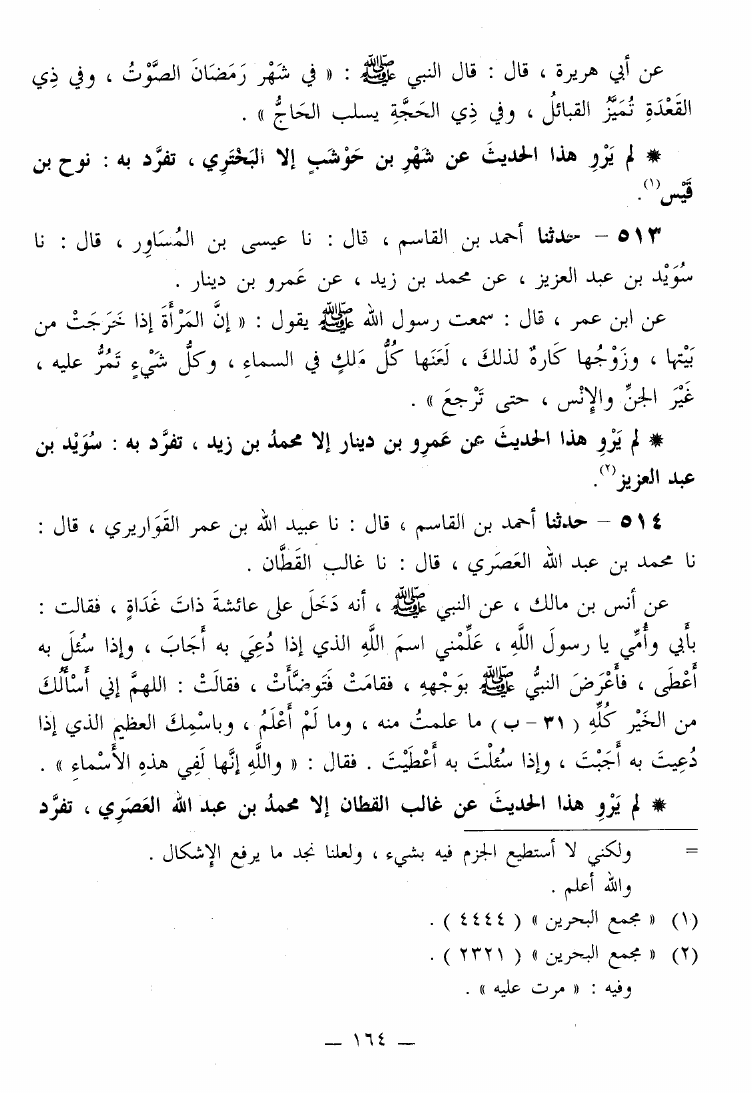 عن أبي هريرة ، قال : قال النبي ﷺ : « في شَهْر رَمَضَانَ الصَّوْتُ ، وفي ذِي
القَعْدَةِ تُمَيَّزُ القبائلُ ، وفي ذِي الحَجَّةِ يسلب الحَاجُّ » .
* لم يَرْوِ هذا الحديثَ عن شَهْرِ بن حَوْشَبٍ إلا البَخْتَرِي ، تفرَّد به : نوح بن
قَيْس(١).
٥١٣ – حدثنا أحمد بن القاسم ، قال : نا عيسى بن المُسَاوِر ، قال : نا
سُوَيْد بن عبد العزيز ، عن محمد بن زيد ، عن عَمرو بن دينار .
عن ابن عمر ، قال : سمعت رسول الله ﷺ يقول : « إنَّ المَرْأَةَ إذا خَرَجَتْ من
بَيْتِها ، وزَوْجُها كَارهٌ لذلكَ ، لَعَنَها كُلُّ مَلكٍ في السماءِ ، وكلُّ شَيْءٍ تَمُرُّ عليه ،
غَيْرَ الجنِّ والإنْس ، حتى تَرْجعَ » .
* لم يَرْوِ هذا الحديثَ عن عَمرِو بن دينار إلا محمدُ بن زيد ، تفرَّد به : سُوَيْد بن
عبد العزيز(٢).
٥١٤ – حدثنا أحمد بن القاسم ، قال : نا عبيد الله بن عمر القَوَاريري ، قال :
نا محمد بن عبد الله العَصَري ، قال : نا غالب القَطَّان .
عن أنس بن مالك ، عن النبي ﷺ ، أنه دَخَلَ على عائشةَ ذاتَ غَدَاةٍ ، فقالت :
بأَبي وأُمِّي يا رسولَ اللَّهِ ، عَلِّمْني اسمَ اللَّهِ الذي إذا دُعِيَ به أَجَابَ ، وإذا سُئلَ به
أَعْطَى ، فأَعْرَضَ النبيُّ ﷺ بوَجْههِ ، فقامَتْ فَتَوضَّأَتْ ، فقالَتْ : اللهمَّ إني أَسْأَلُكَ
من الخَيْر كُلِّهِ ( ٣١ – ب ) ما علمتُ منه ، وما لَمْ أَعْلَمُ ، وباسْمِكَ العظيمِ الذي إذا
دُعِيتَ به أَجَبْتَ ، وإذا سُئلْتَ به أَعْطَيْتَ . فقال : « واللَّهِ إنَّها لَفِي هذهِ الأَسْماءِ » .
* لم يَرْوِ هذا الحديثَ عن غالب القطان إلا محمدُ بن عبد الله العَصَرِي ، تفرَّد
= ولكني لا أستطيع الجزم فيه بشيء ، ولعلنا نجد ما يرفع الإشكال .
والله أعلم .
(١) « مجمع البحرين » ( ٤٤٤٤ ) .
(٢) « مجمع البحرين » ( ٢٣٢١ ) .
وفيه : « مرت عليه » .
— ١٦٤ —